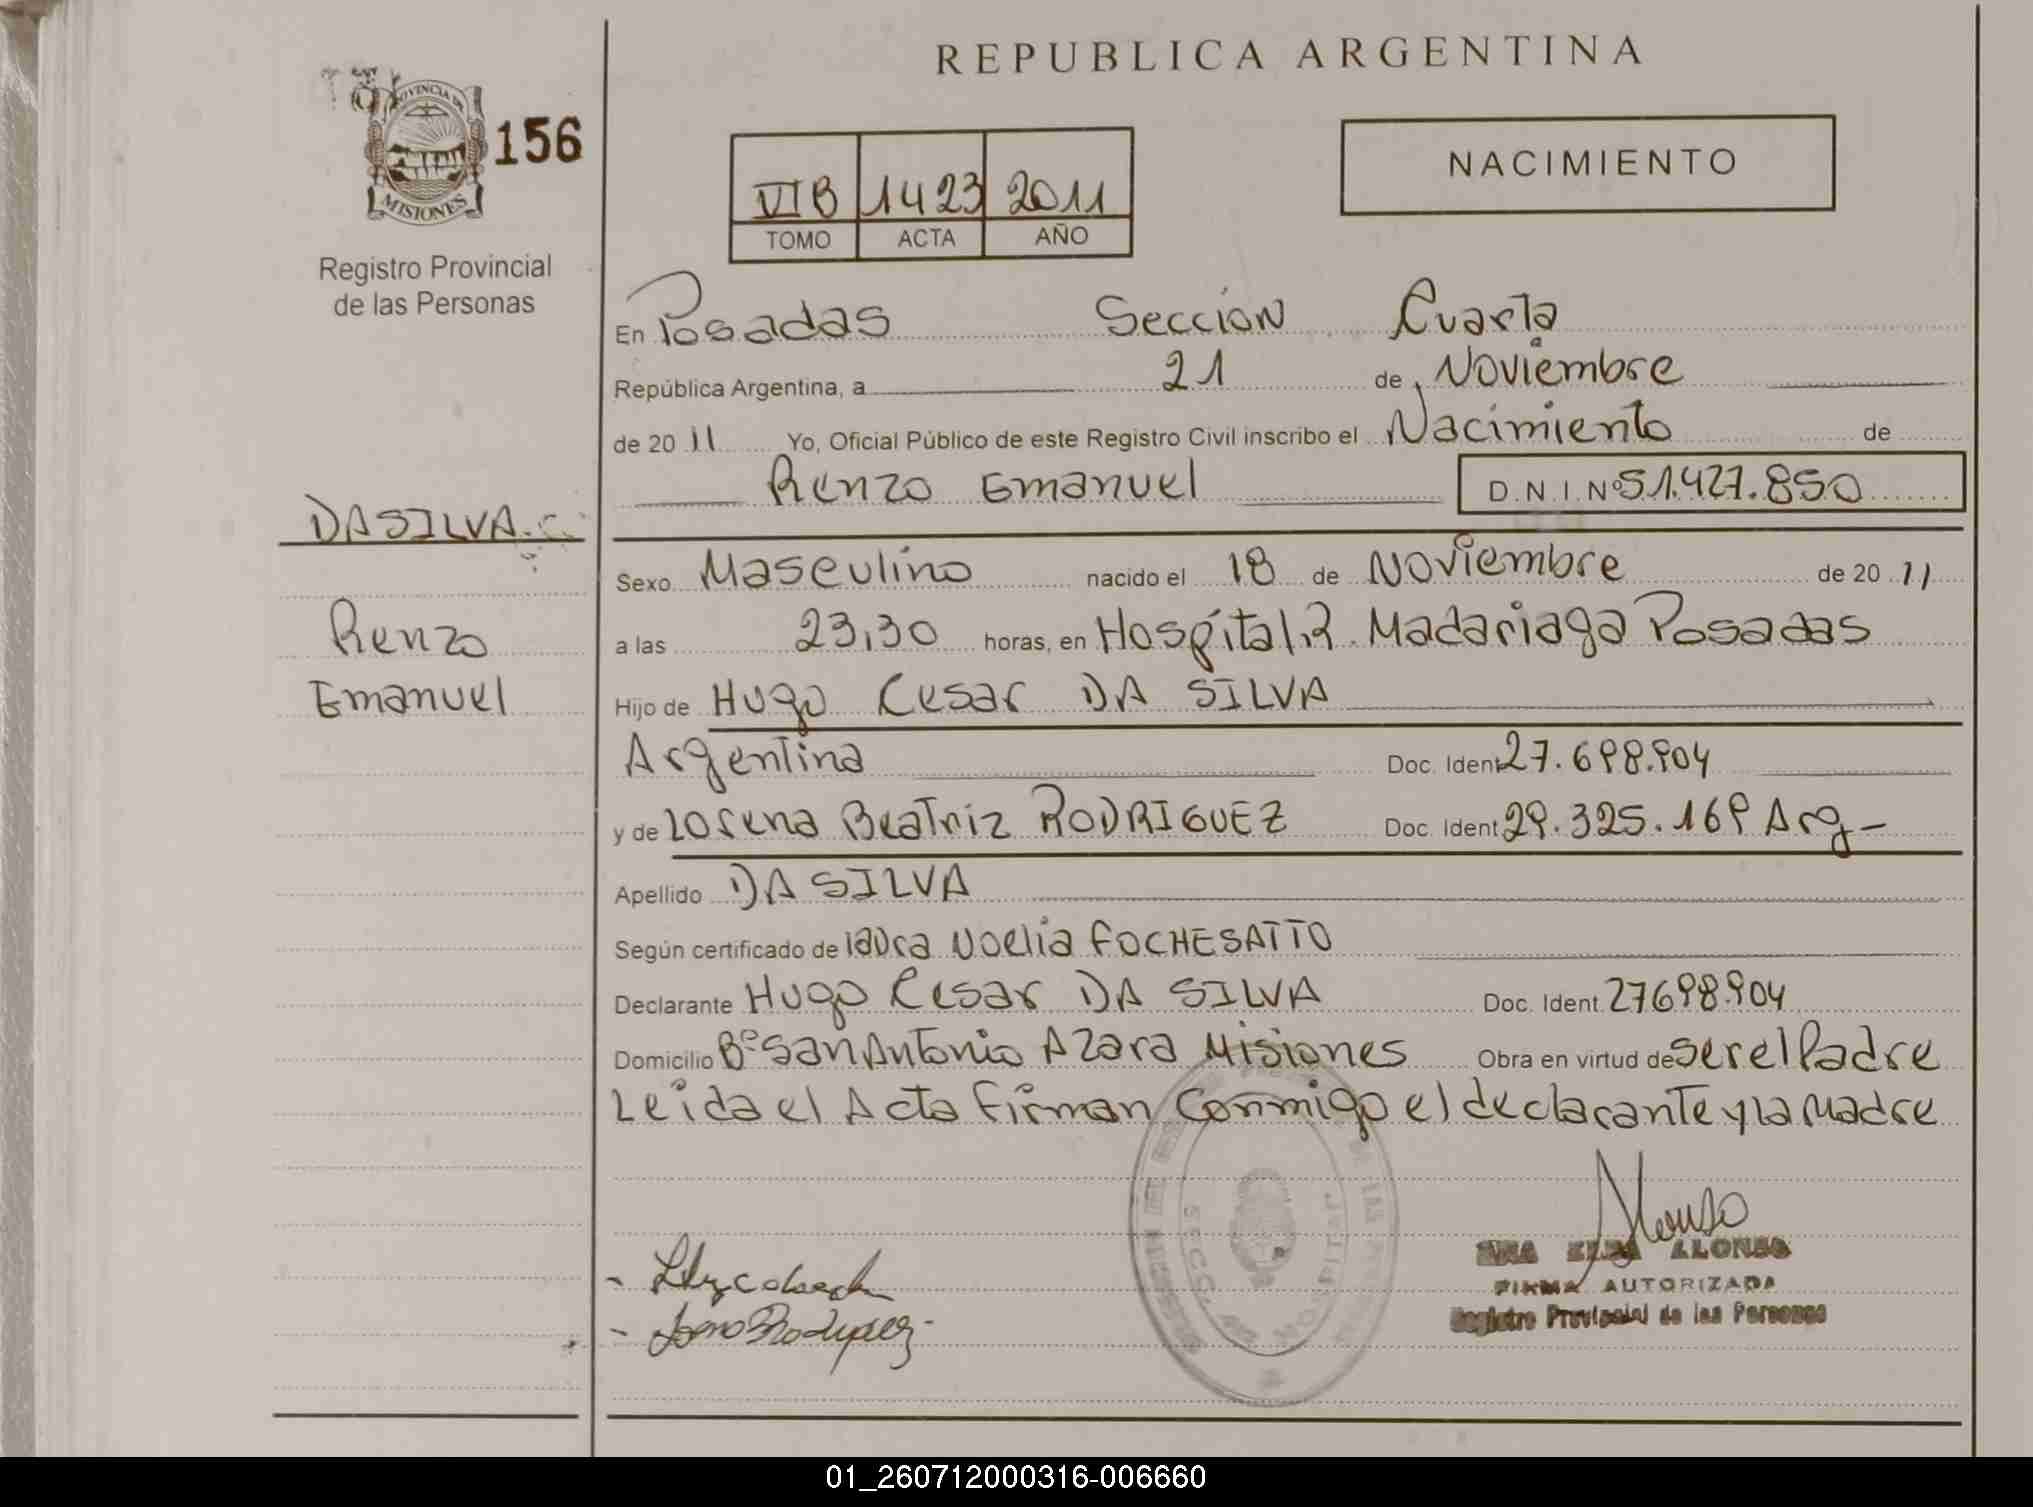 REPUBLICA ARGENTINA
PROVINCIA DE
MISIONES
156
Registro Provincial
de las Personas
VI B 1423 2011
TOMO ACTA AÑO
NACIMIENTO
En Posadas Seccion Cuarta
República Argentina, a 21 de Noviembre
de 20 11 Yo, Oficial Público de este Registro Civil inscribo el Nacimiento de
Renzo Emanuel D.N.I.Nº 51.427.850
DA SILVA
Renzo
Emanuel
Sexo Masculino nacido el 18 de Noviembre de 20 11
a las 23,30 horas, en Hospital R. Madariaga Posadas
Hijo de Hugo Cesar DA SILVA
Argentina Doc. Ident 27.698.904
y de Lorena Beatriz RODRIGUEZ Doc. Ident 29.325.169 Arg-
Apellido DA SILVA
Según certificado de Laura Noelia FOCHESATTO
Declarante Hugo Cesar DA SILVA Doc. Ident. 27698.904
Domicilio Bº San Antonio Azara Misiones Obra en virtud de ser el Padre
Leida el Acta Firman Conmigo el declarante y la Madre
Alonso
ALONSO
FIRMA AUTORIZADA
Registro Provincial de las Personas
01_260712000316-006660